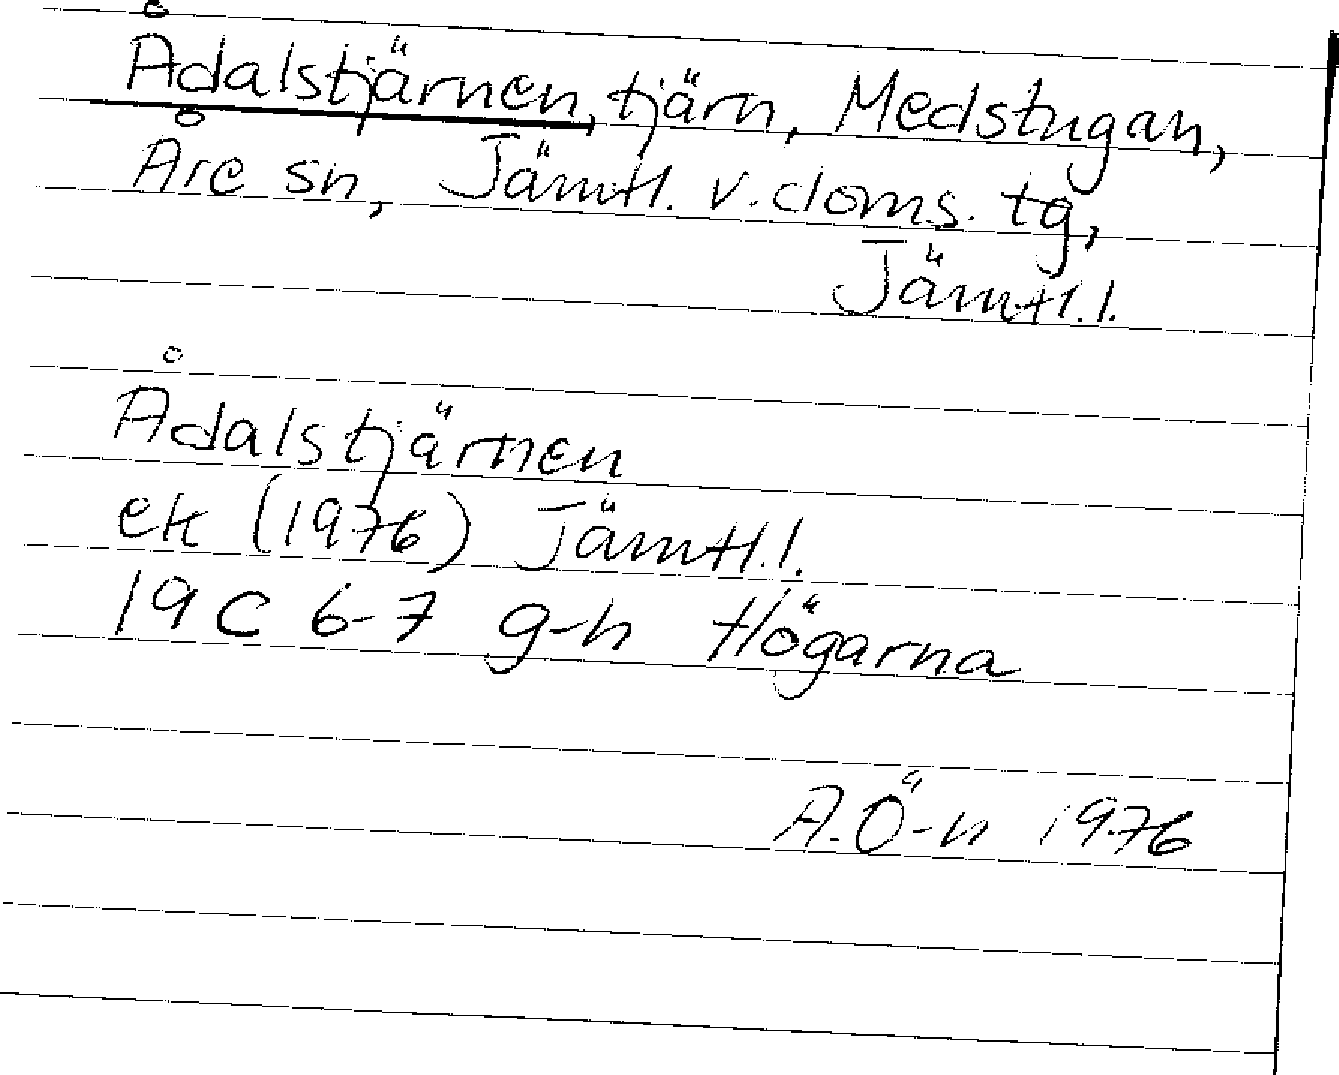 Ådalstjärnen, tjärn, Medstugan,
Åre sn, Jämtl. v. doms. tg,
Jämtl. l.
Ådalstjärnen
ek (1976) Jämtl. l.
19C 6-7 g-h Högarna
A. Ö-n 1976